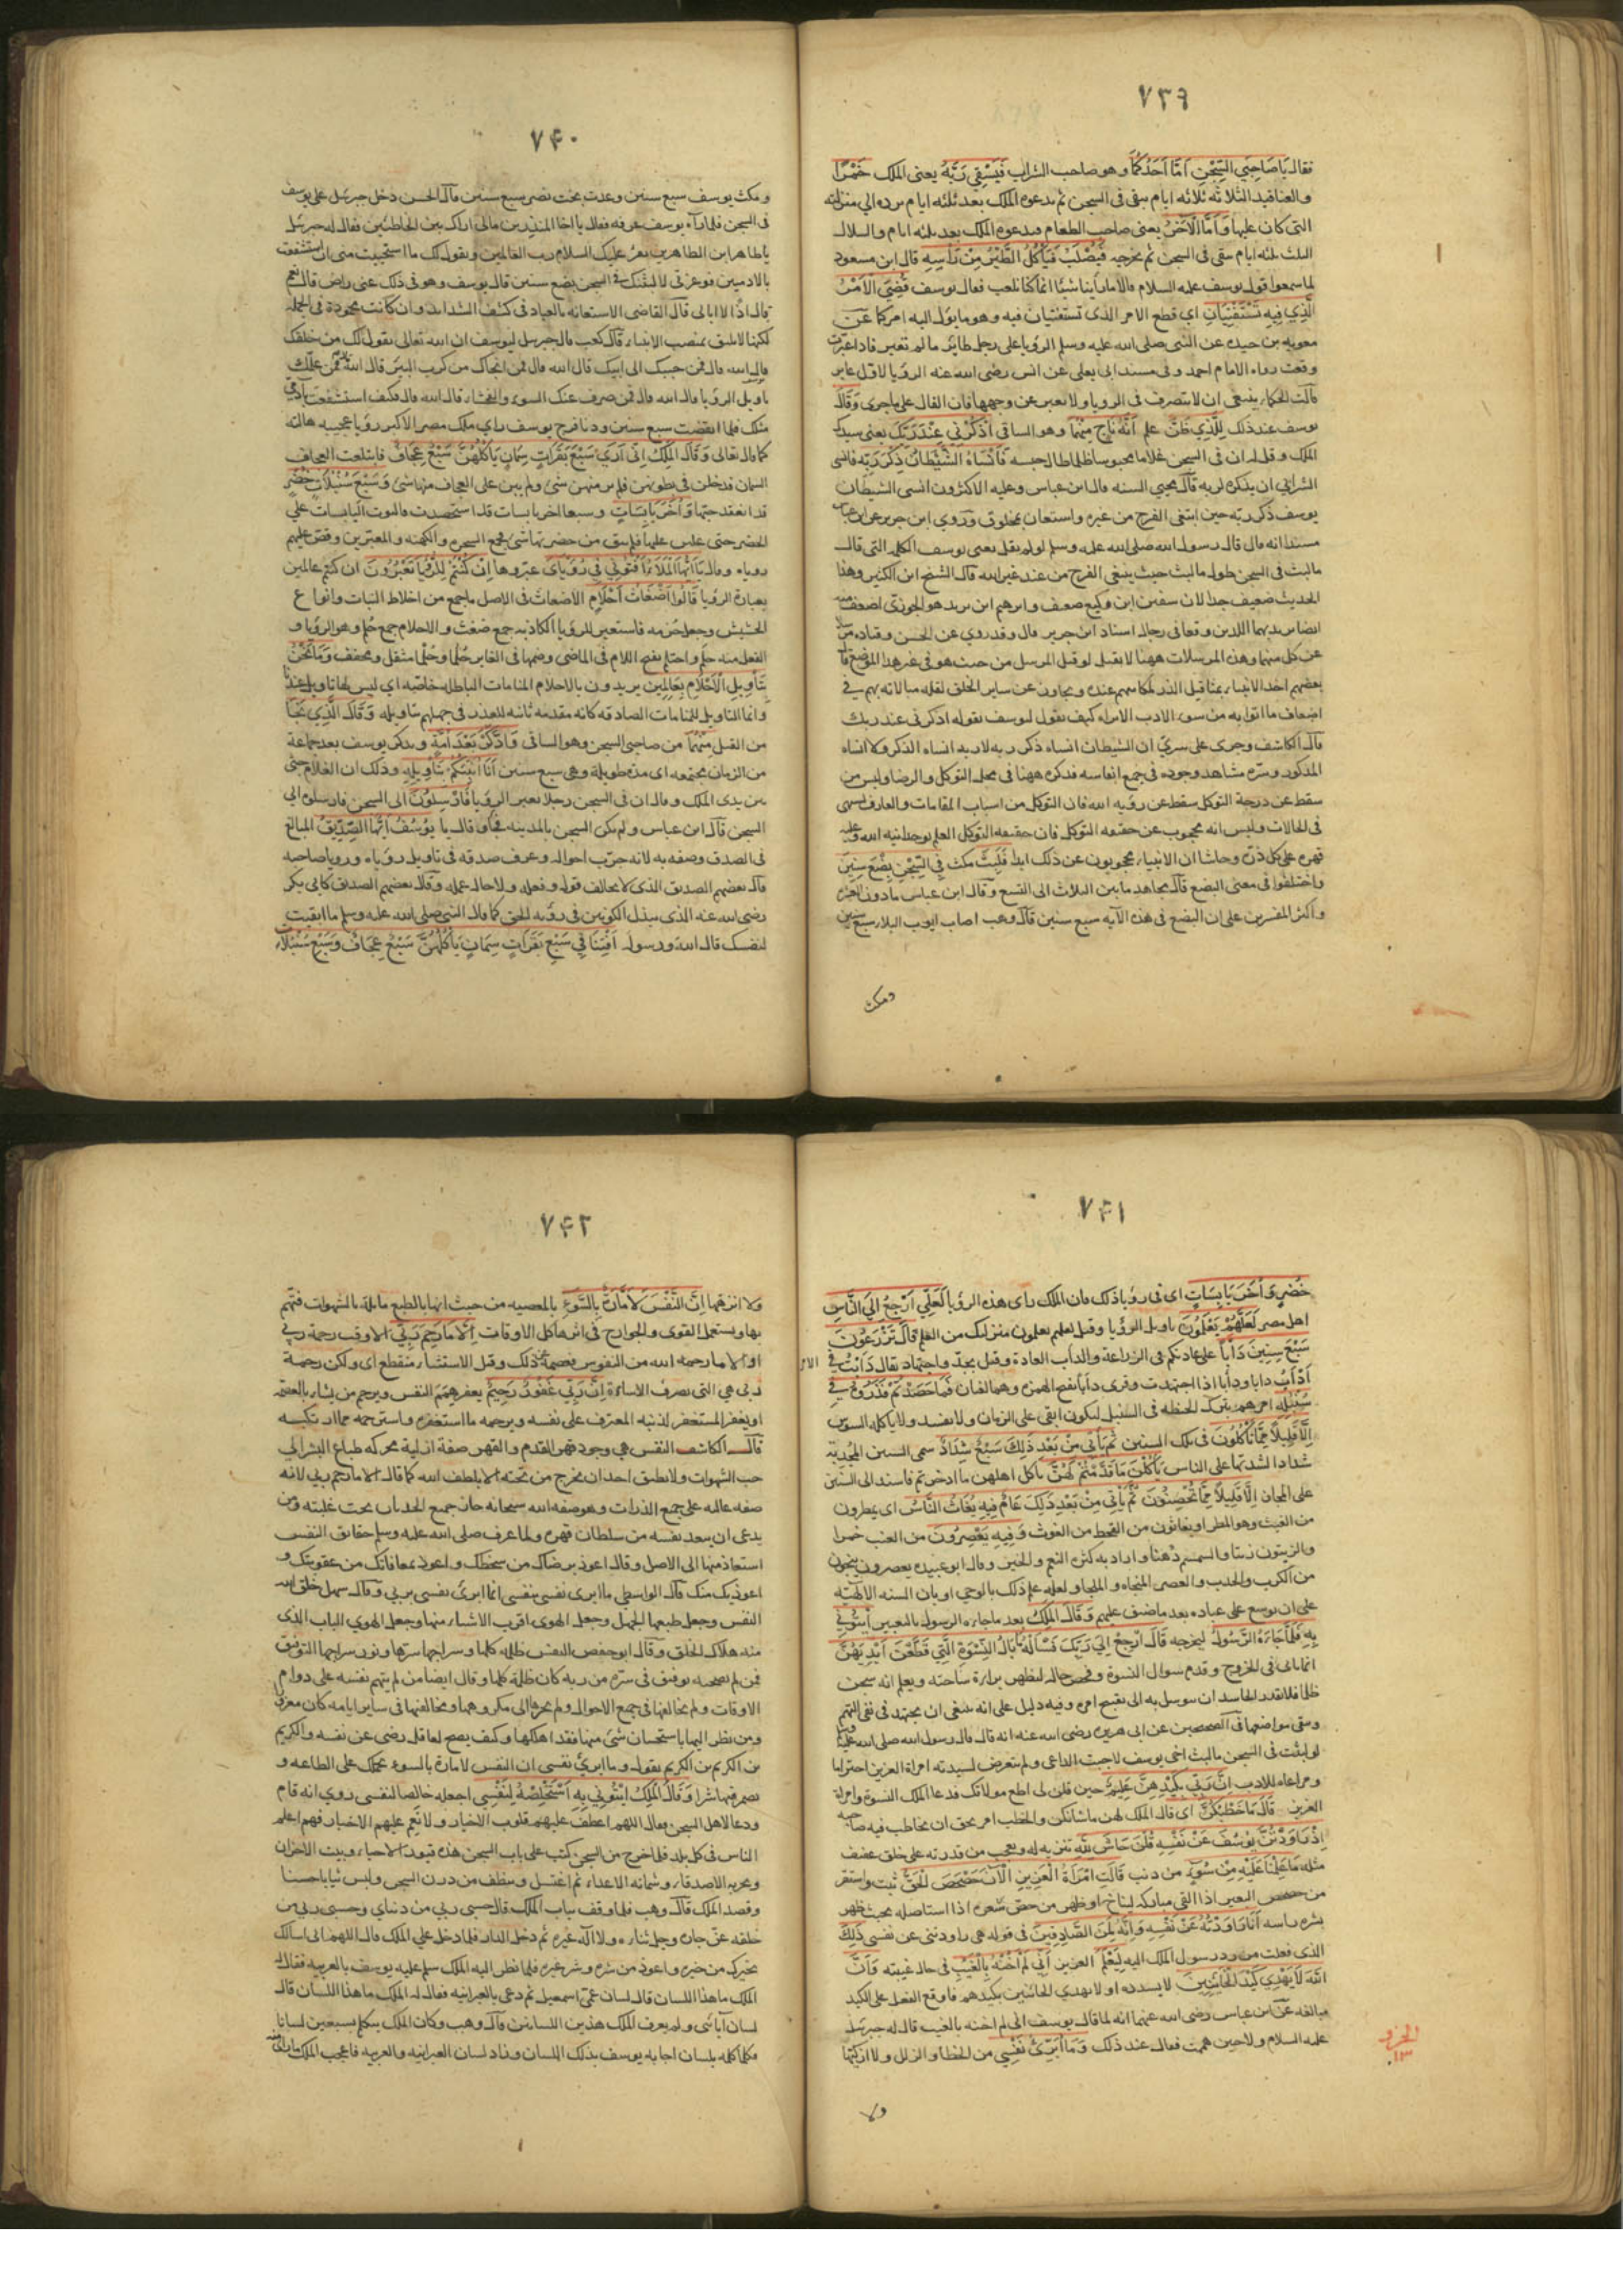 ٧٣٩
فقال يَا صَاحِبَيِ السِّجْنِ اَمَّا اَحَدُكُمَا وهو صاحب الشراب فَيَسْقِي رَبَّهُ يعنى الملك خَمْرًا
والعناقيد الثلاثة ثلاثه ايام يبقى فى السجن ثم يدعوه الملك بعد ثلثه ايام يرده الي منزلته
التى كان عليها وَاَمَّا الْآخَرُ يعنى صاحب الطعام فيدعوه الملك بعد ثلثه ايام والسلال
الثلث ثلثه ايام يبقى فى السجن ثم يخرجه فَيُصْلَبُ فَتَأْكُلُ الطَّيْرُ مِنْ رَأْسِهِ قال ابن مسعود
لما سمعوا قول يوسف عليه السلام قالا ما راينا شيئا انما كنا نلعب فقال يوسف قُضِيَ الْاَمْرُ
الَّذِي فِيهِ تَسْتَفْتِيَانِ اي قطع الامر الذى تستفتيان فيه وهو ما يؤل اليه امركما عن
معويه بن حيده عن النبى صلى الله عليه وسلم الرؤيا على رجل طائر ما لم تعبر فاذا عبرت
وقعت رواه الامام احمد وفى مسند ابى يعلى عن انس رضى الله عنه الرؤيا لاول عابر
قالت الحكماء ينبغى ان لا يتصرف فى الرويا ولا تعبر عن وجهها فان الفال على ما جرى وَقَالَ
يوسف عند ذلك لِلَّذِي ظَنَّ علم اَنَّهُ نَاجٍ مِنْهُمَا وهو الساقى اذْكُرْنِي عِنْدَ رَبِّكَ يعنى سيدك
الملك وقل له ان فى السجن غلاما محبوسا ظلما طال حبسه فَاَنْسَاهُ الشَّيْطَانُ ذِكْرَ رَبِّهِ فانسى
الشرابي ان يذكره لربه قال محيي السنه قال ابن عباس وعليه الاكثرون انسى الشيطان
يوسف ذكر ربه حين ابتغى الفرج من غيره واستعان بمخلوق وروي ابن جرير عن ابن عباس
مسندا انه قال قال رسول الله صلى الله عليه وسلم لو لم يقل يعنى يوسف الكلمة التى قال
ما لبث فى السجن طول ما لبث حيث يبتغى الفرج من عند غير الله قال الشيخ ابن الكثير وهذا
الحديث ضعيف جدا لان سفين ابن وكيع ضعيف وابرهيم ابن يزيد هو الجوزى اضعف منه
ايضا يريد بهما اللذين وقعا فى رجال اسناد ابن جرير قال وقد روي عن الحسن وقتاده مرسلا
عن كل منهما وهذه المرسلات ههنا لا يقبل لو قبل المرسل من حيث هو فى غير هذا الموضع قال
بعضهم اخذ الانبياء بمثاقيل الذر لمكانتهم عنده ويجاوز عن ساير الخلق لقله مبالاته بهم في
اضعاف ما اتوا به من سوء الادب الا تراه كيف يقول ليوسف بقوله اذكرنى عند ربك
قال الكاشف وجرى على سرّي ان الشيطان انساه ذكر ربه لا ربه انساه الذكر ولا انساه
المذكور وسرّه مشاهد وجوده فى جميع انفاسه فذكره ههنا فى محل التوكل والرضا وليس من
سقط عن درجة التوكل سقط عن رؤيه الله فان التوكل من اسباب المقامات والعارف يسهى
فى الحالات وليس انه محجوب عن حقيقه التوكل فان حقيقه التوكل العلم بوحدانيه الله وغلبه
قهره على كل ذرّه وحاشا ان الانبياء محجوبون عن ذلك ابدا فَلَبِثَ مكث فِي السِّجْنِ بِضْعَ سِنِينَ
واختلفوا فى معنى البضع قال مجاهد ما بين الثلاث الى التسع وقال ابن عباس ما دون العشره
واكثر المفسرين على ان البضع فى هذه الآيه سبع سنين قال وهب اصاب ايوب البلاء سبع سنين
ومكث
٧۴٠
ومكث يوسف سبع سنين وعذب بخت نصر سبع سنين قال الحسن دخل جبرئيل على يوسف
فى السجن فلما رآه يوسف عرفه فقال يا اخا المنذرين مالى اراك بين الخاطئين فقال له جبرئيل
يا طاهر ابن الطاهرين يقرؤ عليك السلام رب العالمين ويقول لك ما استحييت منى ان استشفعت
بالآدميين فوعزتى لالبثنك في السجن بضع سنين قال يوسف وهو فى ذلك عنى راض قال نعم
قال اذًا لا ابالى قال القاضى الاستعانه بالعباد فى كشف الشدايد وان كانت محمودة فى الجمله
لكنها لا تليق بمنصب الانبياء قال كعب قال جبرئيل ليوسف ان الله تعالى يقول لك من خلقك
قال الله قال فمن حببك الى ابيك قال الله قال فمن انجاك من كرب البئر قال الله قال فمن علمك
تاويل الرؤيا قال الله قال فمن صرف عنك السوء والفحشاء قال الله قال فكيف استشفعت بآدمى
مثلك فلما انقضت سبع سنين ودنا فرج يوسف راي ملك مصر الاكبر رؤيا عجيبه هالته
كما قال تعالى وَقَالَ الْمَلِكُ اِنِّي اَرَى سَبْعَ بَقَرَاتٍ سِمَانٍ يَاْكُلُهُنَّ سَبْعٌ عِجَافٌ فابتلعت العجاف
السمان فدخلن فى بطونهن فلم ير منهن شئ ولم يبن على العجاف منها شئ وَسَبْعَ سُنْبُلَاتٍ خُضْرٍ
قد انعقد حبها وَاُخَرَ يَابِسَاتٍ وسبعا اخر يابسات قد استحصدت فالتوت اليابسات علي
الخضر حتى غلبن عليها فلم يبق من خضرتها شئ فجمع السحره والكهنه والمعبرين وقص عليهم
روياه وقال يَا اَيُّهَا الْمَلَاُ اَفْتُونِي فِي رُؤْيَايَ عبروها اِنْ كُنْتُمْ لِلرُّؤْيَا تَعْبُرُونَ ان كنتم عالمين
بعبارة الرؤيا قَالُوا اَضْغَاثُ اَحْلَامٍ الاضغاث فى الاصل ما جمع من اخلاط النبات وانواع
الحشيش وجعل حزمه فاستعير للرؤيا الكاذبه جمع ضغث والاحلام جمع حُلم وهو الرؤيا و
الفعل منه حلم واحتلم بفتح اللام فى الماضى وضمها فى الغابر حُلُما وحُلْما مثقل ومخفف وَمَا نَحْنُ
بِتَأْوِيلِ الْاَحْلَامِ بِعَالِمِين يريدون بالاحلام المنامات الباطله خاصه اي ليس لها تاويل عندنا
وانما التاويل للمنامات الصادقه كانه مقدمه ثانيه للعذر فى جهلهم بتاويله وَقَالَ الَّذِي نَجَا
من القتل مِنْهُمَا من صاحبى السجن وهو الساقى وَادَّكَرَ بَعْدَ اُمَّةٍ وتذكر يوسف بعد جماعة
من الزمان مجتمعه اى مده طويله وهى سبع سنين اَنَا اُنَبِّئُكُمْ بِتَاْوِيلِهِ وذلك ان الغلام جثى
بين يدى الملك وقال ان فى السجن رجلا يعبر الرؤيا فَاَرْسِلُونَ الى السجن فارسلوه الى
السجن قال ابن عباس ولم يكن السجن بالمدينه فجاء وقال يا يُوسُفُ اَيُّهَا الصِّدِّيقُ المبالغ
فى الصدق وصفه به لانه جرّب احواله وعرف صدقه فى تاويل روياه ورويا صاحبه
قال بعضهم الصديق الذى لا يخالف قوله وفعله ولا حاله عمله وقال بعضهم الصديق كابى بكر
رضى الله عنه الذى يبذل الكونين فى رؤيه الحق كما قال النبى صلى الله عليه وسلم ما ابقيت
لنفسك قال الله ورسوله اَفْتِنَا فِي سَبْعِ بَقَرَاتٍ سِمَانٍ يَأْكُلُهُنَّ سَبْعٌ عِجَافٌ وَسَبْعِ سُنْبُلَاتٍ
٧۴١
خُضْرٍ وَاُخَرَ يَابِسَاتٍ اى فى رؤيا ذلك فان الملك رأى هذه الرؤيا لَعَلِّي اَرْجِعُ اِلَى النَّاسِ
اهل مصر لَعَلَّهُمْ يَعْلَمُونَ تاويل الرؤيا وقيل لعلهم يعلمون منزلتك من العلم قَالَ تَزْرَعُونَ
سَبْعَ سِنِينَ دَاَبًا على عادتكم فى الزراعة والداب العادة وقيل بجدّ واجتهاد يقال دَابْتُ في الامر
اَدْاَبُ دابا ودَاَبا اذا اجتهدت وقرى دَاَبا بفتح الهمزه وهما لغتان فَمَا حَصَدْتُمْ فَذَرُوهُ فِي
سُنْبُلِهِ امرهم بترك الحنطه فى السنبل ليكون ابقى على الزمان ولا يفسد ولا ياكله السوس
اِلَّا قَلِيلًا مِمَّا تَأْكُلُونَ فى تلك السنين ثُمَّ يَأْتِي مِنْ بَعْدِ ذَلِكَ سَبْعٌ شِدَادٌ سمى السنين المجدبة
شدادا لشدتها على الناس يَاْكُلْنَ مَا قَدَّمْتُمْ لَهُنَّ ياكل اهلهن ما ادخرتم فاسند الى السنين
على المجاز اِلَّا قَلِيلًا مِمَّا تُحْصِنُونَ ثُمَّ يَأْتِي مِنْ بَعْدِ ذَلِكَ عَامٌ فِيهِ يُغَاثُ النَّاسُ اى يمطرون
من الغيث وهو المطر او يغاثون من القحط من الغوث وَفِيهِ يَعْصِرُونَ من العنب خمرا
والزيتون زيتا والسمسم دهنا واراد به كثره النعم والخير وقال ابو عبيده يعصرون ينجون
من الكرب والجدب والعصر المنجاه والملجا ولعله علم ذلك بالوحي او بان السنه الالهيه
على ان يوسع على عباده بعد ما ضيق عليهم وَقَالَ الْمَلِكُ بعد ما جاءه الرسول بالتعبير ائْتُونِي
بِهِ فَلَمَّا جَاءَهُ الرَّسُولُ ليخرجه قَالَ ارْجِعْ اِلَى رَبِّكَ فَسْاَلْهُ مَا بَالُ النِّسْوَةِ الَّتِي قَطَّعْنَ اَيْدِيَهُنَّ
انما تانى فى الخروج وقدم سوال النسوة وفحص حاله لتظهر براءة ساحته ويعلم انه سجن
ظلما فلا يقدر الحاسد ان يتوسل به الى تقبيح امره وفيه دليل على انه ينبغى ان يجتهد فى نفى التهم
ويتقى مواضعها فى الصحيحين عن ابى هريره رضى الله عنه انه قال قال رسول الله صلى الله عليه وسلم
لو لبثت فى السجن ما لبث اخى يوسف لاجبت الداعى ولم يتعرض لسيدته امراة العزيز احتراما
ومراعاه للادب اِنَّ رَبِّي بِكَيْدِهِنَّ عَلِيمٌ حين قلن لى اطع مولاتك فدعا الملك النسوة وامراة
العزيز قَالَ مَا خَطْبُكُنَّ اى قال الملك لهن ما شانكن والخطب امر يحق ان يخاطب فيه صاحبه
اِذْ رَاوَدْتُنَّ يُوسُفَ عَنْ نَفْسِهِ قُلْنَ حَاشَ لِلَّهِ تنزيه له وتعجب من قدرته على خلق عفيف
مثله مَا عَلِمْنَا عَلَيْهِ مِنْ سُوءٍ من ذنب قَالَتِ امْرَاَةُ الْعَزِيزِ الْآنَ حَصْحَصَ الْحَقُّ ثبت واستقر
من حصحص البعير اذا القى مباركه ليناخ او ظهر من حصّ شعره اذا استاصله بحيث ظهر
بشره راسه اَنَا رَاوَدْتُهُ عَنْ نَفْسِهِ وَاِنَّهُ لَمِنَ الصَّادِقِينَ فى قوله هى راودتنى عن نفسى ذَلِكَ
الذى فعلت من رد رسول الملك اليه لِيَعْلَمَ العزيز اَنِّي لَمْ اَخُنْهُ بِالْغَيْبِ فى حال غيبته وَاَنَّ
اللَّهَ لَا يَهْدِي كَيْدَ الْخَائِنِينَ لا يسدده او لا يهدي الخائنين بكيدهم فاوقع الفعل على الكيد
مبالغه عن ابن عباس رضى الله عنهما انه لما قال يوسف انى لم اخنه بالغيب قال له جبرئيل
عليه السلام ولا حين هممت فقال عند ذلك وَمَا اُبَرِّئُ نَفْسِي من الخطا والزلل ولا ازكيها
الجزو
١٣
ولا
٧۴٢
ولا انزهها اِنَّ النَّفْسَ لَاَمَّارَةٌ بِالسُّوءِ بالمعصيه من حيث انها بالطبع مايلة بالشهوات فتهم
بها ويستعمل القوى والجوارح فى اثرها كل الاوقات اِلَّا مَا رَحِمَ رَبِّي الا وقت رحمة ربى
او الا ما رحمه الله من النفوس بعصمة ذلك وقيل الاستثناء منقطع اى ولكن رحمة
ربى هي التى تصرف الاساءة اِنَّ رَبِّي غَفُورٌ رَحِيمٌ يغفر همّ النفس ويرحم من يشاء بالعصمه
او يغفر المستغفر لذنبه المعترف على نفسه ويرحمه ما استغفره واسترحمه مما ارتكبه
قال الكاشف النفس هي وجود قهر القدم والقهر صفة ازلية محركه طباع البشر الى
حب الشهوات ولا يطيق احد ان يخرج من تحته الا بلطف الله كما قال الا ما رحم ربي لانه
صفه غالبه على جميع الذرات وهو صفه الله سبحانه حاز جميع الحدثان تحت غلبته ومن
يدعى ان يبعد نفسه من سلطان قهره ولما عرف صلى الله عليه وسلم حقايق النفس
استعاذ منها الى الاصل وقال اعوذ برضاك من سخطك واعوذ بمعافاتك من عقوبتك و
اعوذ بك منك قال الواسطي ما ابرى نفسى بنفسى انما ابرئ نفسى بربي وقال سهل خلق الله
النفس وجعل طبعها الجهل وجعل الهوى اقرب الاشياء منها وجعل الهوى الباب الذى
منه هلاك الخلق وقال ابو حفص النفس ظلمه كلها وسراجها سرّها ونور سراجها التوفيق
فمن لم يصحبه توفيق فى سرّه من ربه كان ظلمة كلها وقال ايضا من لم يتهم نفسه على دوام
الاوقات ولم يخالفها فى جميع الاحوال ولم يجرها الى مكروهها ومخالفتها فى ساير ايامه كان مغرورا
ومن نظر اليها باستحسان شئ منها فقد اهلكها وكيف يصح لعاقل رضى عن نفسه والكريم
بن الكريم بن الكريم يقول وما ابرئ نفسي ان النفس لامارة بالسوء تحملك على الطاعه و
تضمر فيها شرا وَقَالَ الْمَلِكُ ائْتُونِي بِهِ اَسْتَخْلِصْهُ لِنَفْسِي اجعله خالصا لنفسى روي انه قام
ودعا لاهل السجن فقال اللهم اعطف عليهم قلوب الاخيار ولا تعم عليهم الاخبار فهم اعلم
الناس فى كل بلد فلما خرج من السجن كتب على باب السجن هذه قبور الاحياء وبيت الاحزان
وتجربه الاصدقاء وشماته الاعداء ثم اغتسل وتنظف من درن السجن ولبس ثيابا حسنا
وقصد الملك قال وهب فلما وقف بباب الملك قال حسبى ربي من دنياي وحسبى ربي من
خلقه عزّ جاره وجل ثناؤه ولا اله غيره ثم دخل الدار فلما دخل علي الملك قال اللهم انى اسالك
بخيرك من خيره واعوذ من شره وشر غيره فلما نظر اليه الملك سلم عليه يوسف بالعربيه فقال
الملك ما هذا اللسان قال لسان عمّى اسمعيل ثم دعى بالعبرانيه فقال له الملك ما هذا اللسان قال
لسان آبائى ولم يعرف الملك هذين اللسانين قال وهب وكان الملك يتكلم بسبعين لسانا
فكلما كلمه بلسان اجابه يوسف بذلك اللسان وزاد لسان العبرانيه والعربيه فاعجب الملك ما راى منه